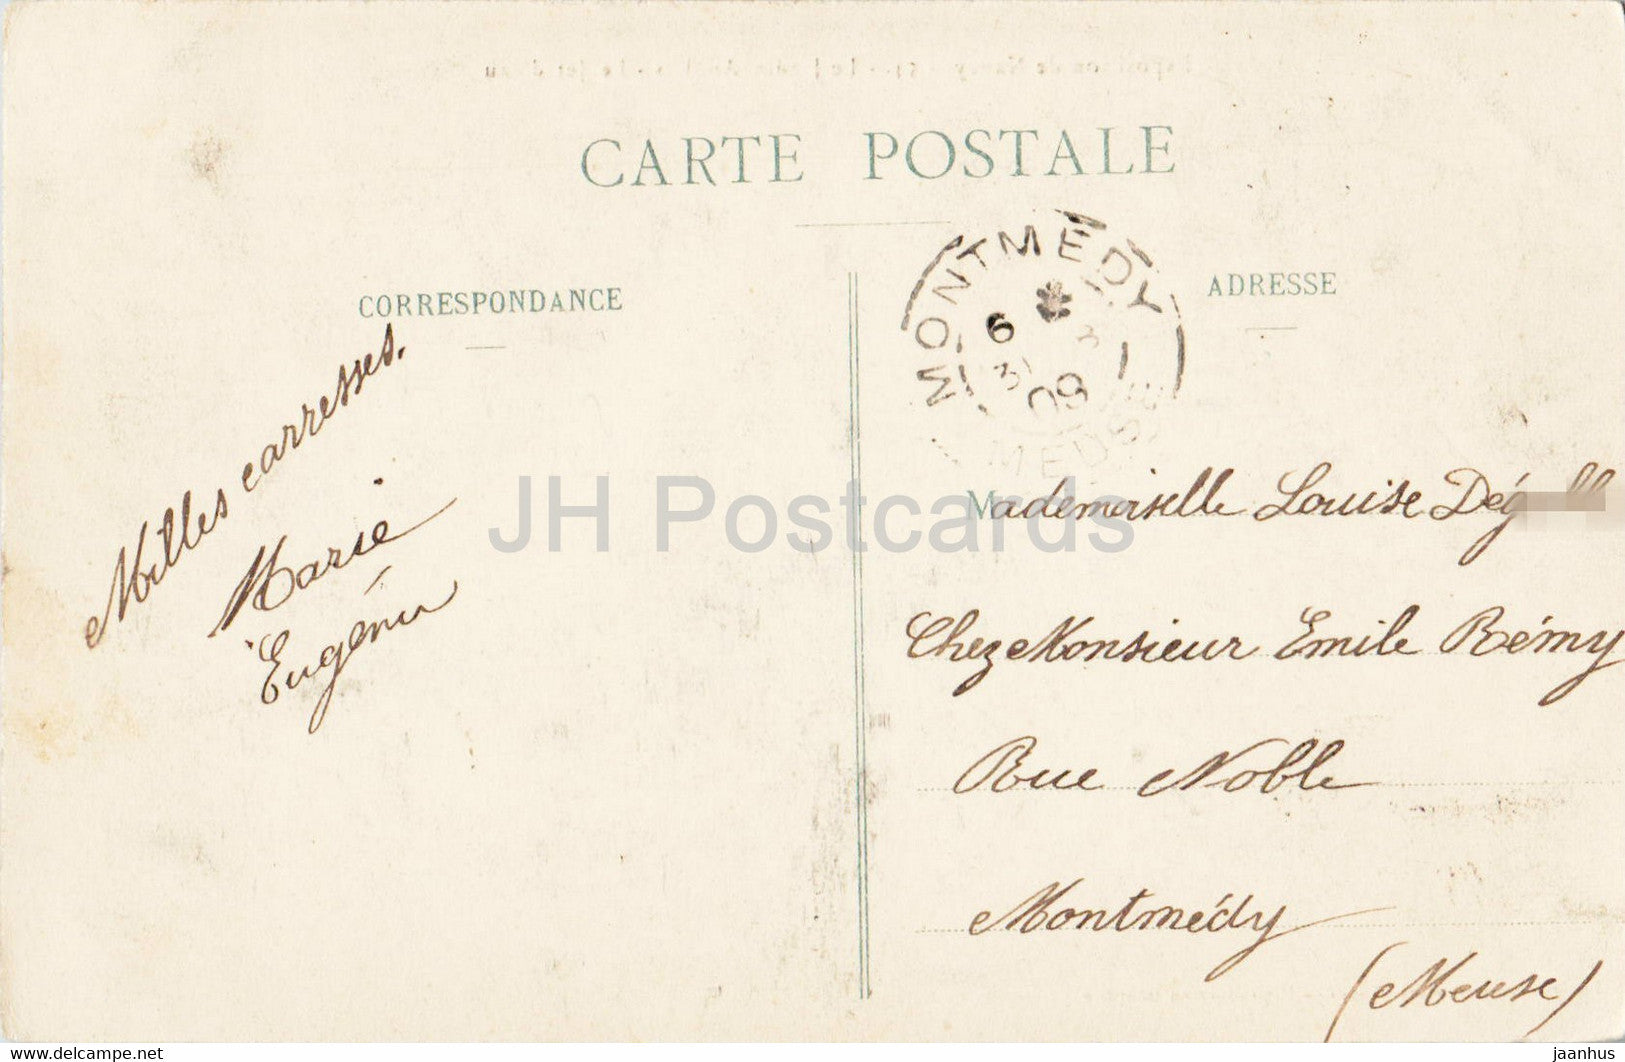 CARTE POSTALE
CORRESPONDANCE
ADRESSE
MONTMEDY
6
3
31
09
MEUSE
Milles carresses.
Marie
Eugénie
JH Postcards
Mademoiselle Louise
Chez Monsieur Emile Rémy
Rue Noble
Montmédy
(Meuse)
www.delcampe.net
jaanhus